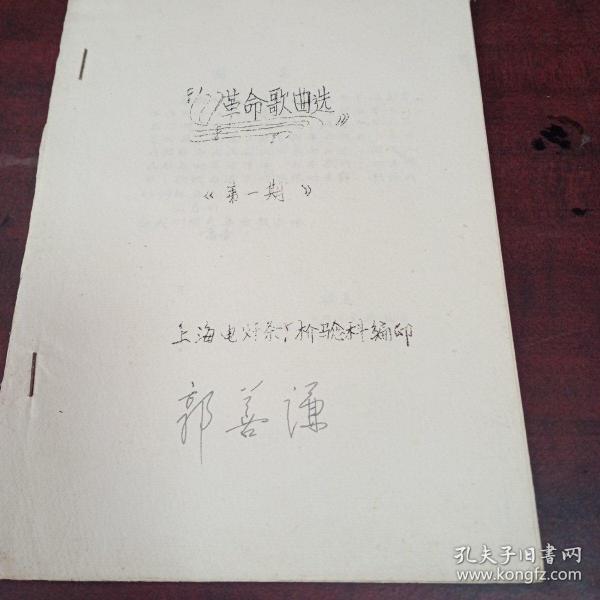 革命歌曲选
《第一期》
上海电灯泡厂检验科编印
郭善谦
孔夫子旧書网
www.kongfz.com